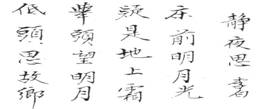 靜夜思書
床前明月光
疑是地上霜
舉頭望明月
低頭思故鄉